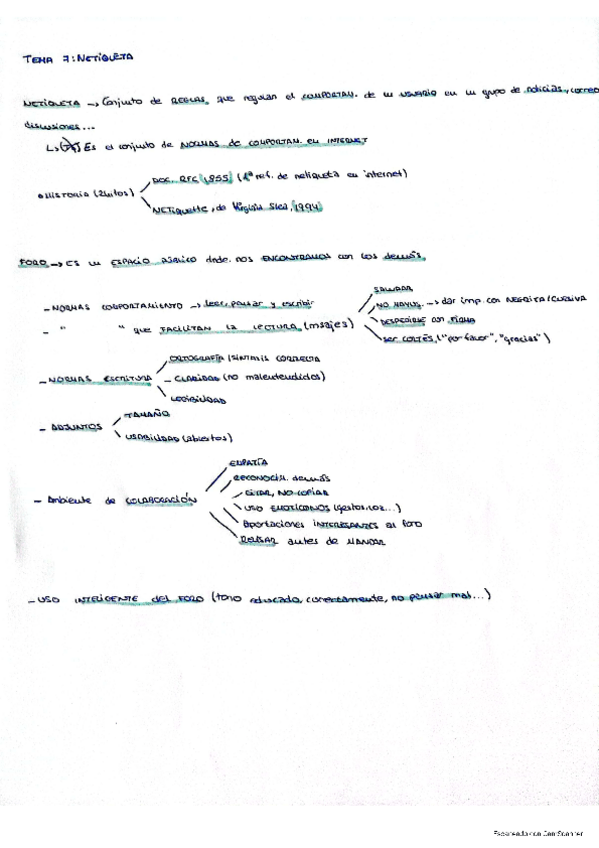 TEMA 7: NETIQUETA
NETIQUETA → Conjunto de REGLAS que regulan el COMPORTAM. de un USUARIO en un grupo de noticias, correo
discusiones...
L> Es el conjunto de NORMAS DE COMPORTAM. en INTERNET
DOC. RFC 1855 (1ª ref. de netiqueta en internet)
HISTORIA (2 hitos)
NETiquette, de Virginia Shea, 1994
FORO → Es un ESPACIO PÚBLICO donde nos ENCONTRAMOS con los demás.
SALUDAR
- NORMAS COMPORTAMIENTO → leer, pensar y escribir
NO MAYUS. → dar imp. con NEGRITA/CURSIVA
- " " que FACILITAN LA LECTURA (msajes)
DESPEDIRSE con FIRMA
SER CORTÉS ("por favor", "gracias")
ORTOGRAFÍA/SINTAXIS CORRECTA
- NORMAS ESCRITURA - CLARIDAD (no malentendidos)
LEGIBILIDAD
TAMAÑO
- ADJUNTOS
USABILIDAD (abiertos)
EMPATÍA
RECONOCIM. demás
- Ambiente de COLABORACIÓN
CITAR, NO COPIAR
USO EMOTICONOS (gestos, voz...)
Aportaciones INTERESANTES al foro
REVISAR antes de MANDAR
- USO INTELIGENTE del FORO (tono educado, correctamente, no pensar mal...)
Escaneado con CamScanner